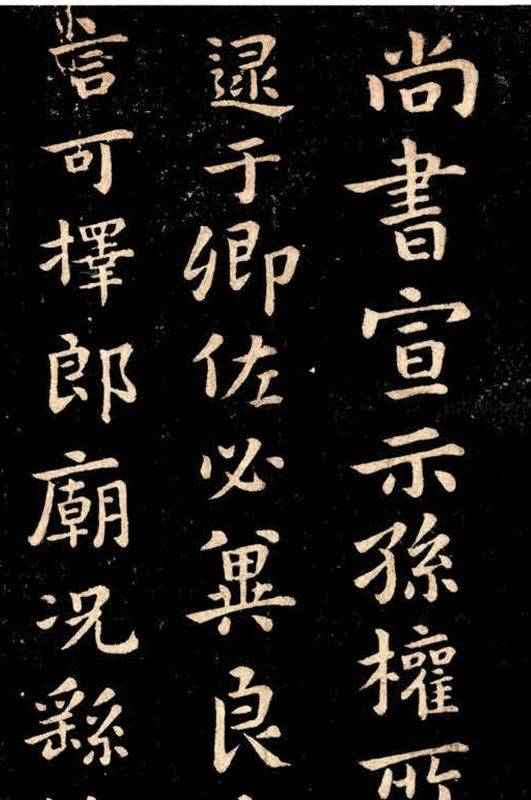 尚書宣示孫權所
逮于卿佐必兾良
言可擇郎廟況繇